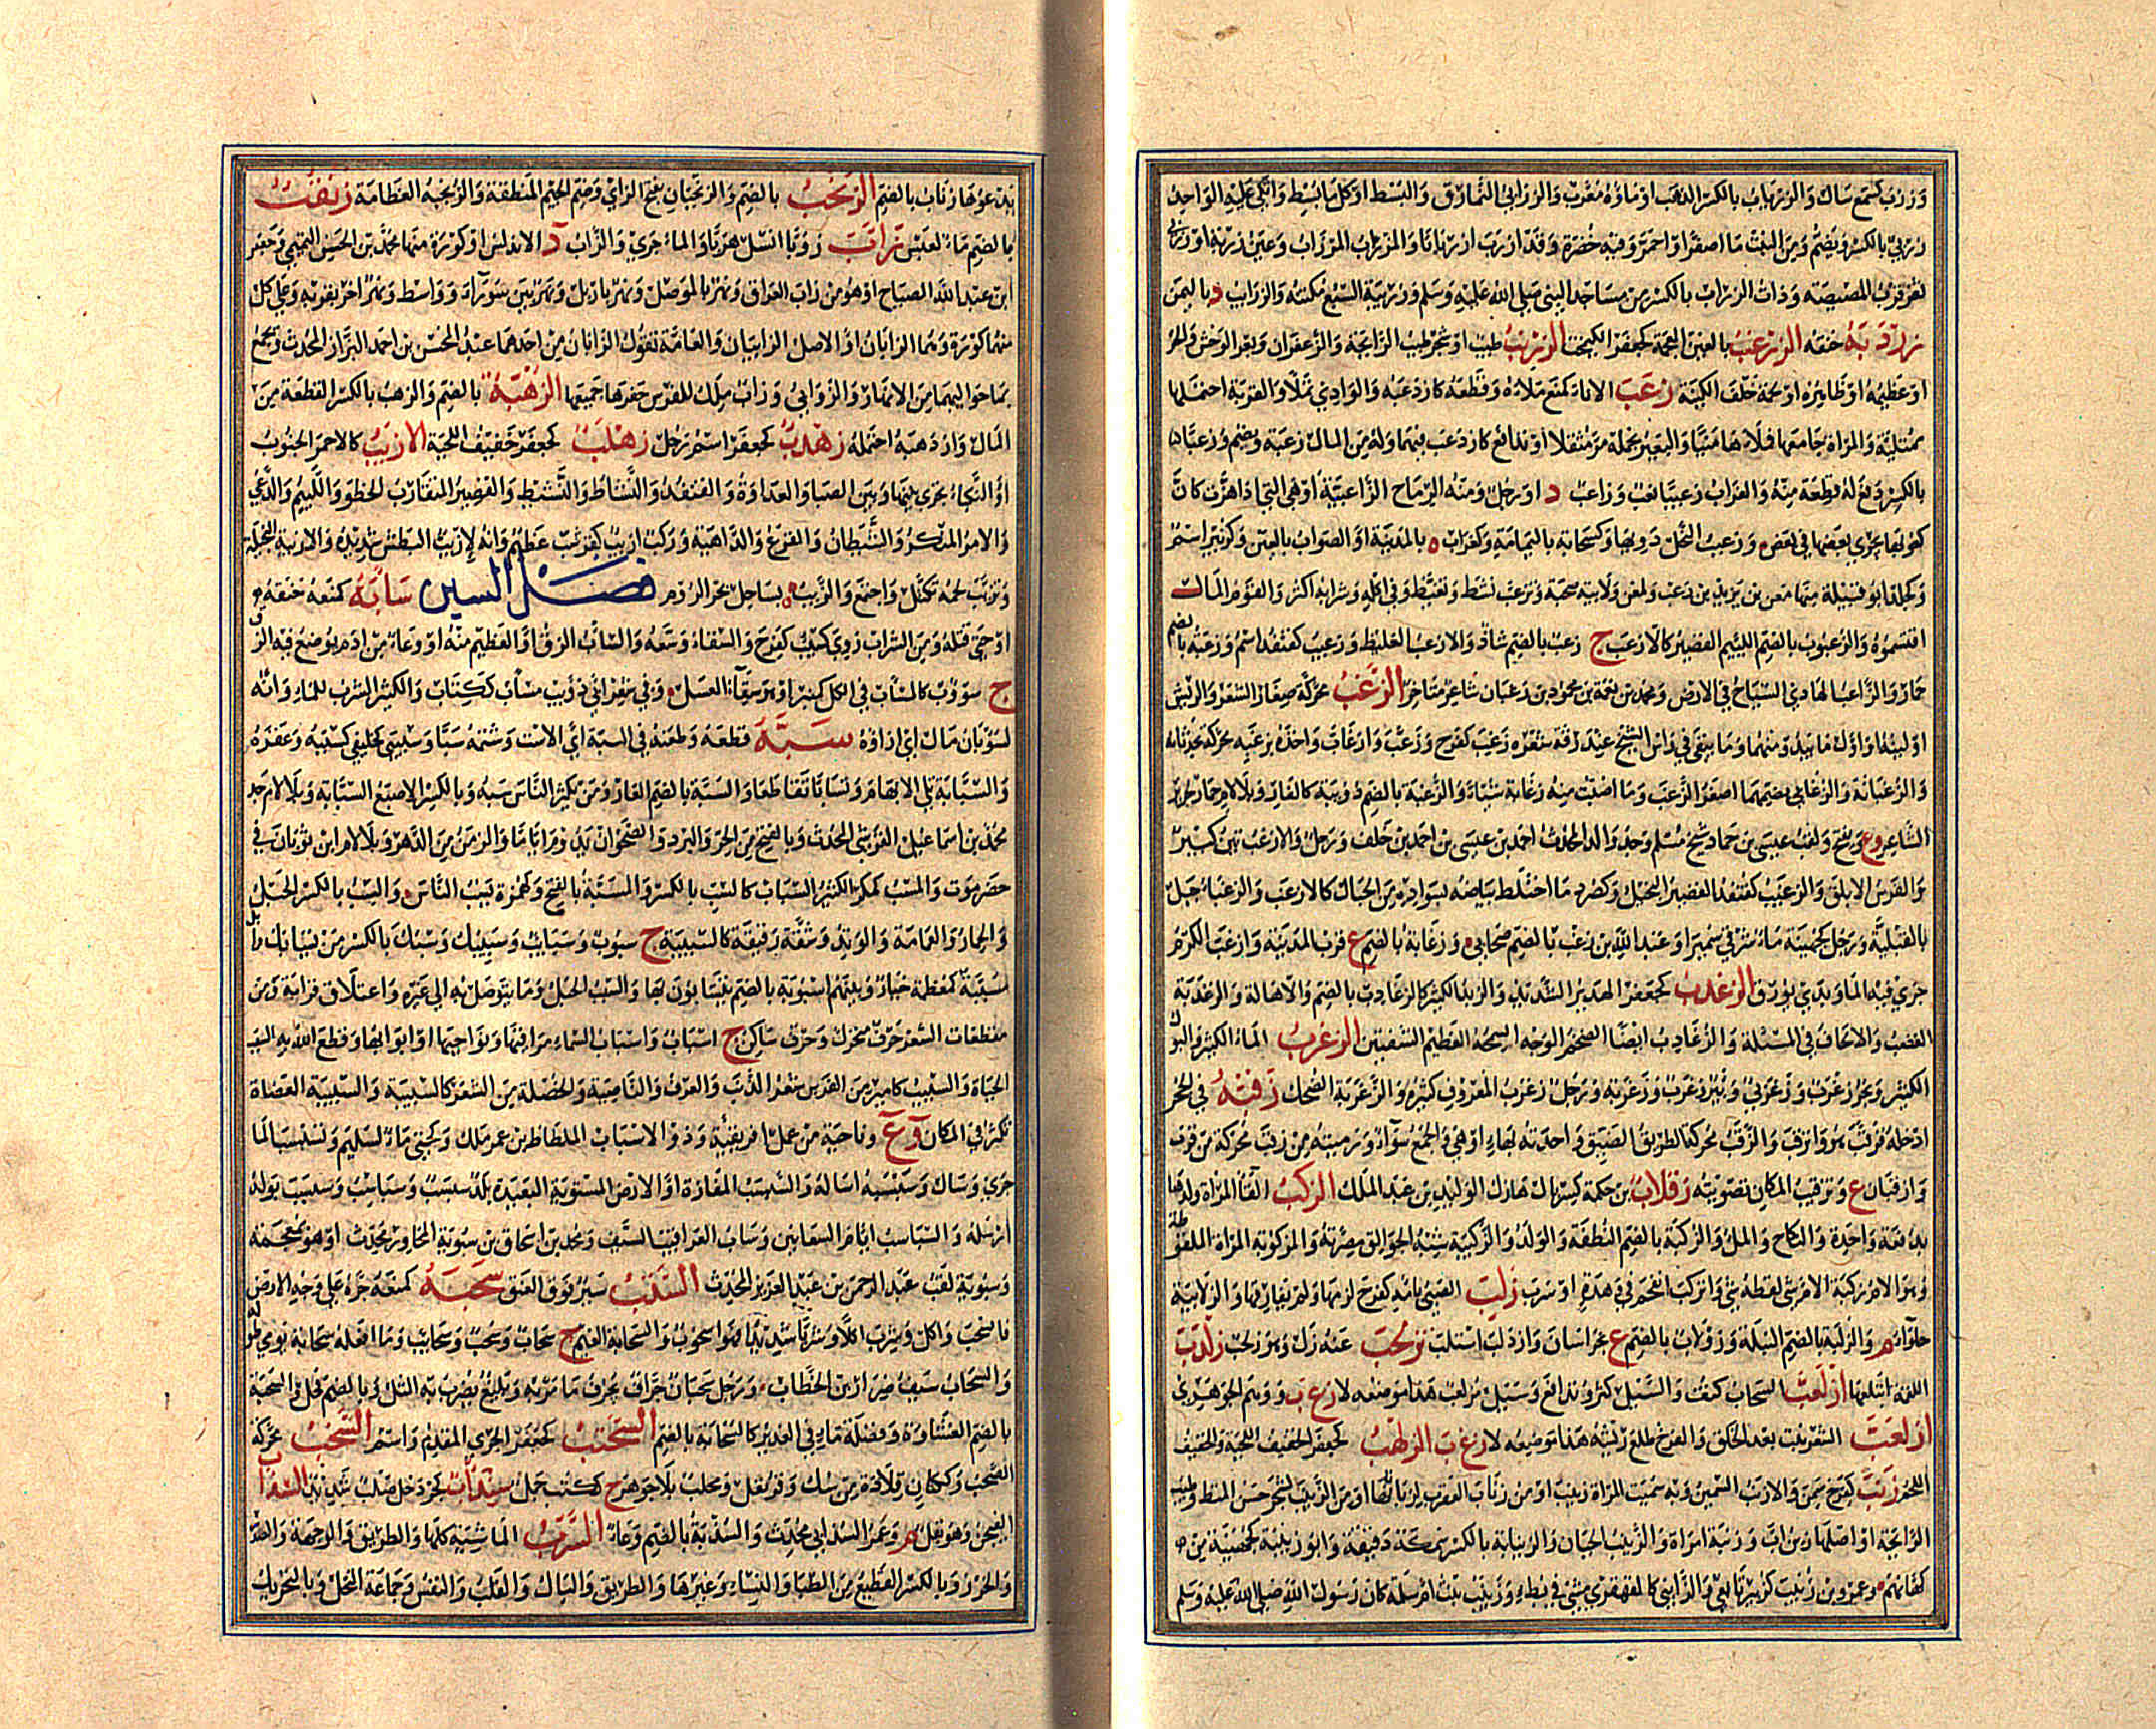 وزرب كسمع سال والزرياب بالكسر الذهب او ماؤه معرب والزرابي النمارق والبسط او كل ما بسط واتكي عليه الواحد
زربي بالكسر ويضم ومن النبت ما اصفر او احمر وفيه خضرة وقد ازرب ازربابا والمزراب المرزاب وعين زربة او زربى
ثغر قرب المصيصة وذات الزراب بالكسر من مساجد النبي صلى الله عليه وسلم وزريبة السبع مكتنه والزرايب د باليمن
زردبه خنقه الزرغب بالغين المعجمة كجعفر الكيمخت الزرنب طيب او شجر طيب الرايحة والزعفران وبعر الوحش والحر
او عظيمه او ظاهره او لحمة خلف الكينة زعب الاناء كمنع ملاءه وقطعه كازدعبه والوادي تملأ والقربة احتملها
ممتلئة والمراة جامعها فملاها منيا والبعير بحمله مر مثقلا او تدافع كازدعب فيهما وله من المال زعبة ويضم وزعبا
بالكسر دفع له قطعة منه والغراب زعيبا نعب وزاعب د او رجل ومنه الرماح الزاعبية او هي التي اذا هزت كان
كعوبها يجري بعضها في بعض وزعيب النحل دويها وكسحابة باليمامة وكغراب ه بالمدينة او الصواب بالغين وكزبير اسم
وكجلد ابو قبيلة منها معن بن يزيد بن زعب ولمعن ولابيه صحبة وتزعب نشط وتغيظ وفي اكله وشرابه اكثر والقوم المال
اقتسموه والزعبوب بالضم اللئيم القصير كالازعب ج زعب بالضم شاذ والازعب الغليظ وزعيب كقنفذ اسم وزعبة بالضم
حمار والزاعب الهادي السياح في الارض ومحمد بن نعمة بن محمود بن زعبان شاعر متاخر الزغب محركة صغار الشعر والريش
او لينه او اول ما يبدو منهما وما يبقى في راس الشيخ عند رقة شعره زغب كفرح وزغب وازغاب واخذه بزغبه محركة بحدثانه
والزغبانة والزغابى بضمهما اصغر الزغب وما اصبت منه زغابة شيئا والزغبة بالضم دويبة كالفار وبلا لام حمار جرير
الشاعر وع ويفتح ولقب عيسى بن حماد شيخ مسلم وجد والد المحدث احمد بن عيسى بن احمد بن خلف ورجل والازغب تين كبير
والفرس الابلق والزغيب كقنفذ القصير البخيل وكصرد ما اختلط بياضه بسواده من الحبال كالازغب والزغباء جبل
بالقبلية ورجل كجهينة ماء شرقي سميراء وعبد الله بن زغب بالضم صحابي وزغابة بالضم ع قرب المدينة وازغب الكرم
جرى فيه الماء وبدى يورق الزغدب كجعفر الهدير الشديد والزبد الكثير كالزغادب بالضم والاهالة والزغدبة
الغضب والالحاف في المسئلة والزغادب ايضا الضخم الوجه السمجه العظيم الشفتين الزغرب الماء الكثير والبول
الكثير وبحر زغرب وزغربي وبئر زغرب وزغربة ورجل زغرب المعروف كثيره والزغربة الضحك زقبه في الجحر
ادخله فزقب هو وانزقب والزقب محركة الطريق الضيق واحدته بهاء او هي والجمع سواء ورميته من زقب محركة من قرب
وازقبان ع وتزقيب المكاء تصويته زقلاب بن حكمة كسربال هازل الوليد بن عبد الملك الزكب القاء المراة ولدها
بدفعة واحدة والنكاح والملء والزكبة بالضم النطفة والولد والزكيبة شبه الجوالق مصرية والمزكوبة المراة الملقوطة
وهو الام زكبة الام شيء لقطه شيء وانزكب انقحم في وهدة او سرب زلب الصبي بامه كفرح لزمها ولم يفارقها والزلابية
حلواء م والزلبة بالضم النبلة وزولاب بالضم ع بخراسان وازدلب استلب تزلحب عنه زل وهو زلحب زلدب
اللقمة ابتلعها ازلعب السحاب كثف والسيل كثر وتدافع وسيل مزلعب هذا موضعه لا زع ب ووهم الجوهري
ازلغب الشعر نبت بعد الحلق والفرخ طلع زغبه هذا موضعه لا زغ ب الزلهب كجعفر الخفيف اللحية والخفيف
اللحم زنب كفرح سمن والازنب السمين وبه سميت المراة زينب او من زنابى العقرب لزباناها او من الزينب لشجر حسن المنظر طيب
الرائحة او اصلها زين اب وزنبة امراة والزينب الجبان والزينابة بالكسر سمكة دقيقة وابو زنيبة كجهينة من
كناهم وعمرو بن زنيب كزبير تابعي والزانبى كالقهقرى مشي في بطء وزينب بنت ام سلمة كان رسول الله صلى الله عليه وسلم
يدعوها زناب بالضم الزنجب بالضم والزنجبان بفتح الزاي وضم الجيم المنطقة والزنجبة العظامة زنقب
بالضم ماء لعبس زاب زوبا انسل هربا والماء جري والزاب د الاندلس او كورة منها محمد بن الحسن التميمي وجعفر
ابن عبد الله الصباح او هو من زاب العراق ونهر بالموصل ونهر باربل ونهر بين سوراء وواسط ونهر اخر بقربه وعلى كل
منهما كورة وهما الزابان او الاصل الزابيان والعامة تقول الزابان من احدهما عبد المحسن بن احمد البزاز المحدث ويجمع
بما حواليهما من الانهار والزوابي وزاب ملك للفرس حفرها جميعها الزهبة بالضم والزهب بالكسر القطعة من
المال وازدهبه احتمله زهدب كجعفر اسم رجل زهلب كجعفر خفيف اللحية الازيب كالاحمر الجنوب
او النكباء تجري بينها وبين الصبا والعداوة والقنفذ والنشاط والنشيط والقصير المتقارب الخطو واللئيم والدعي
والامر المنكر والشيطان والفزع والداهية وركب ازيب كقرشب عظيم وانه لازيب البطش شديده والازيبة البخيلة
وتزيب لحمه تكتل واجتمع والزيب ه بساحل بحر الروم فصل السين سأبه كمنعه خنقه
او حتى قتله ومن الشراب روي كسئب كفرح والسقاء وسعه والسأب الزق او العظيم منه او وعاء من ادم يوضع فيه الزق
ج سؤوب كالمسأب في الكل كمنبر او هو سقاء العسل وفي شعر ابي ذؤيب مساب ككتاب والكثير الشرب للماء وانه
لسؤبان مال اي ازاؤه سبه قطعه وطعنه في السبة اي الاست وشتمه سبا وسبيبى كخليفى كسببه وعقره
والسبابة تلي الابهام وتسابا تقاطعا والسبة بالضم العار ومن يكثر الناس سبه وبالكسر الاصبع السبابة وبلا لام جد
محمد بن اسماعيل القرشي المحدث وبالفتح من الحر والبرد والصحو ان يدوم اياما والزمن من الدهر وبلا لام ابن ثوبان في
حضرموت والمسب كمكر الكثير السباب كالسب بالكسر والمسبة بالفتح وكهمزة يسب الناس والسب بالكسر الحبل
والخمار والعمامة والوتد وشقة رقيقة كالسبيبة ج سبوب وسبايب وسبيبك وسبك بالكسر من يسابك وابل
مسببة كمعظمة خيار وبينهم اسبوبة بالضم يتسابون بها والسبب الحبل وما يتوصل به الى غيره واعتلاق قرابة ومن
مقطعات الشعر حرف متحرك وحرف ساكن ج اسباب واسباب السماء مراقيها ونواحيها او ابوابها وقطع الله به السبب
الحياة والسبيب كامير من الفرس شعر الذنب والعرف والناصية والخصلة من الشعر كالسبيبة والسبيبة العضاه
تكثر في المكان وع وناحية من عمل افريقية وذو الاسباب الملطاط بن عمر ملك وكحتى ماء لسليم وتسبسب الماء
جرى وسال وسبسبه اساله والسبسب المفازة او الارض المستوية البعيدة بلد سبسب وسباسب وسبسب بوله
ارسله والسباسب ايام السعانين وساب العراقيب السيف ومحمد بن اسحاق بن سبوية المجاور محدث او هو بمعجمة
وسبوية لقب عبد الرحمن بن عبد العزيز المحدث السنب سير فوق العنق سحبه كمنعه جره على وجه الارض
فانسحب واكل وشرب اكلا وشربا شديدا فهو اسحوب والسحابة الغيم ج سحاب وسحب وسحايب وما افعله سحابة يومي طوله
والسحاب سيف ضرار بن الخطاب ورجل سحبان جراف يجرف ما مر به وبليغ يضرب به المثل وبالضم فحل والسحبة
بالضم الغشاوة وفضلة ماء في الغدير كالسحابة بالضم السحتب كجعفر الجري المقدم واسم السخب محركة
الصخب وككتاب قلادة من سك وقرنفل ومحلب بلا جوهر ج ككتب جمل سنداب كجردحل صلب شديد السذاب
الفيجن وهو بقل م وعمر السذابي محدث والسذبة بالضم وعاء السرب الماشية كلها والطريق والوجهة والصدر
والخرز وبالكسر القطيع من الظباء والنساء وغيرها والطريق والبال والقلب والنفس وجماعة النخل وبالتحريك